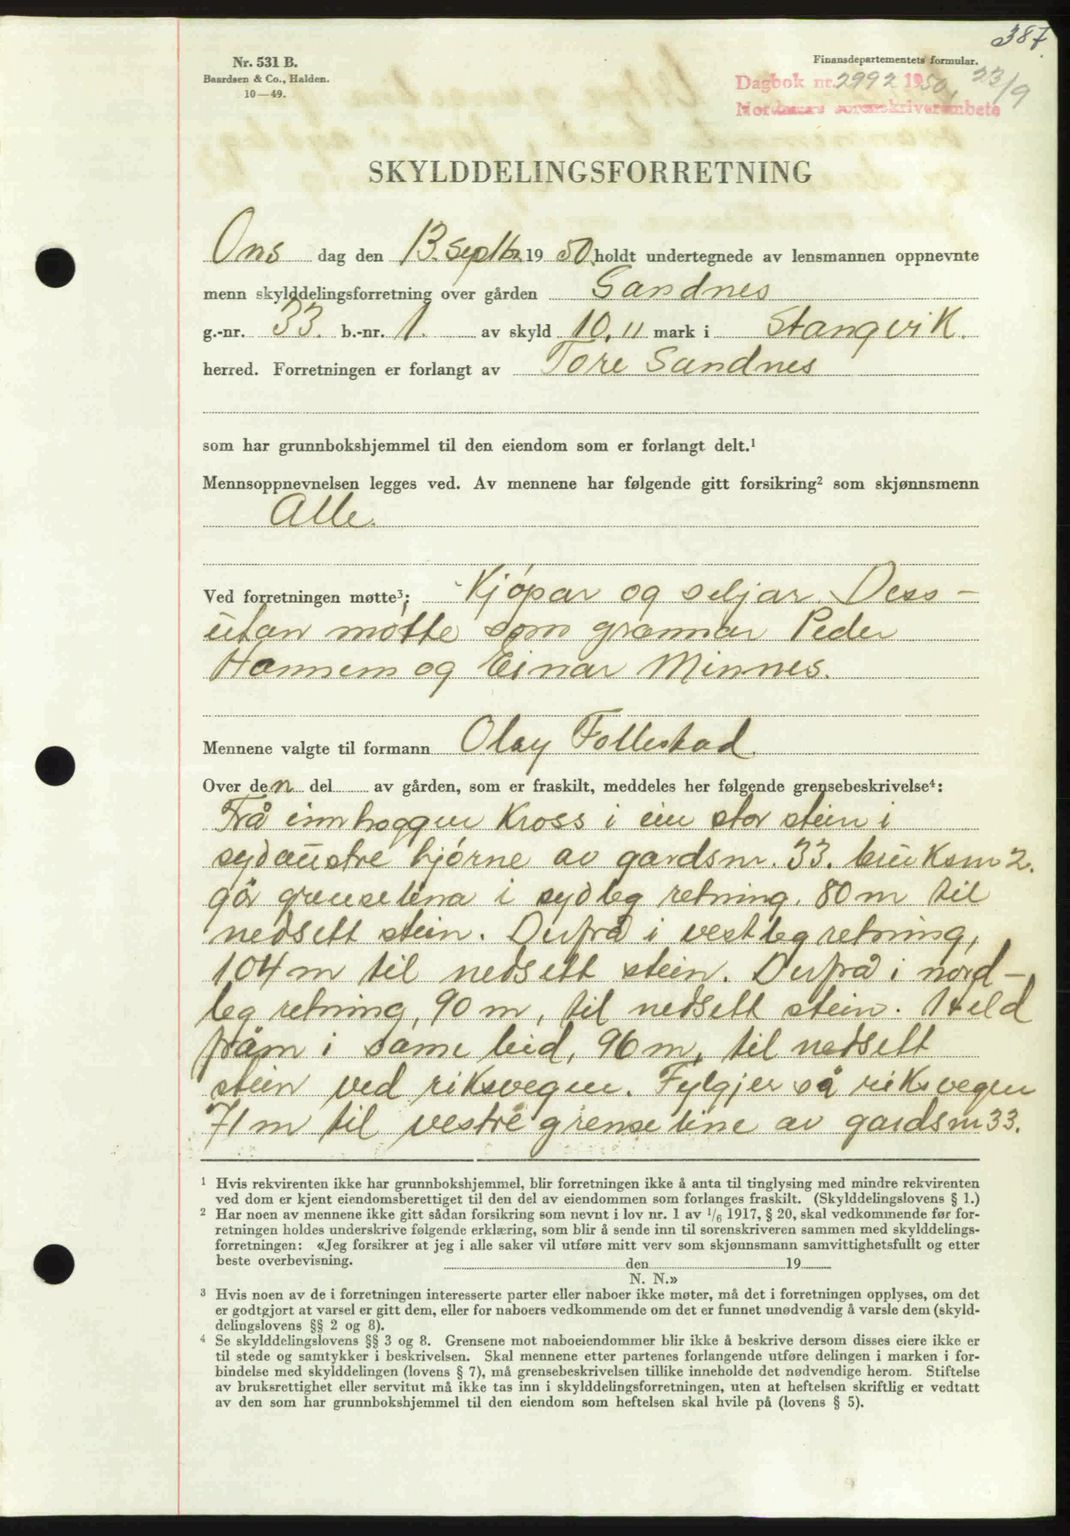 387.
Nr. 531 B.
Baardsen & Co., Halden.
10—49.
Finansdepartementets formular.
Dagbok nr. 2992 1950, 23/9
Nordmøre sorenskriverembete
SKYLDDELINGSFORRETNING
Ons dag den 13. septbr. 19 50. holdt undertegnede av lensmannen oppnevnte
menn skylddelingsforretning over gården Sandnes
g.-nr. 33. b.-nr. 1. av skyld 10,11 mark i Stangvik.
herred. Forretningen er forlangt av Tore Sandnes
som har grunnbokshjemmel til den eiendom som er forlangt delt.¹
Mennsoppnevnelsen legges ved. Av mennene har følgende gitt forsikring² som skjønnsmenn
Alle.
Ved forretningen møtte³: Kjøpar og seljar. Dess-
utan møtte som grannar Peder
Hannem og Einar Minnes.
Mennene valgte til formann Olav Follestad.
Over den del av gården, som er fraskilt, meddeles her følgende grensebeskrivelse⁴:
Frå innhoggen Kross i ein stor stein i
sydaustre hjørne av gardsnr. 33. bruksnr 2.
går grenselina i sydleg retning, 80 m til
nedsett stein. Derfrå i vestleg retning,
104 m til nedsett stein. Derfrå i nord-
leg retning, 90 m, til nedsett stein. Held
fram i same leid, 96 m, til nedsett
stein ved riksvegen. Fylgjer så riksvegen
71 m til vestre grenseline av gardsnr 33.
¹ Hvis rekvirenten ikke har grunnbokshjemmel, blir forretningen ikke å anta til tinglysing med mindre rekvirenten
ved dom er kjent eiendomsberettiget til den del av eiendommen som forlanges fraskilt. (Skylddelingslovens § 1.)
² Har noen av mennene ikke gitt sådan forsikring som nevnt i lov nr. 1 av 1/6 1917, § 20, skal vedkommende før for-
retningen holdes underskrive følgende erklæring, som blir å sende inn til sorenskriveren sammen med skylddelings-
forretningen: «Jeg forsikrer at jeg i alle saker vil utføre mitt verv som skjønnsmann samvittighetsfullt og etter
beste overbevisning. den 19
N. N.»
³ Hvis noen av de i forretningen interesserte parter eller naboer ikke møter, må det i forretningen opplyses, om det
er godtgjort at varsel er gitt dem, eller for naboers vedkommende om det er funnet unødvendig å varsle dem (skyld-
delingslovens §§ 2 og 8).
⁴ Se skylddelingslovens §§ 3 og 8. Grensene mot naboeiendommer blir ikke å beskrive dersom disses eiere ikke er
til stede og samtykker i beskrivelsen. Skal mennene etter partenes forlangende utføre delingen i marken i for-
bindelse med skylddelingen (lovens § 7), må grensebeskrivelsen tillike inneholde det nødvendige herom. Stiftelse
av bruksrettighet eller servitut må ikke tas inn i skylddelingsforretningen, uten at heftelsen skriftlig er vedtatt
av den som har grunnbokshjemmel til den eiendom som heftelsen skal hvile på (lovens § 5).